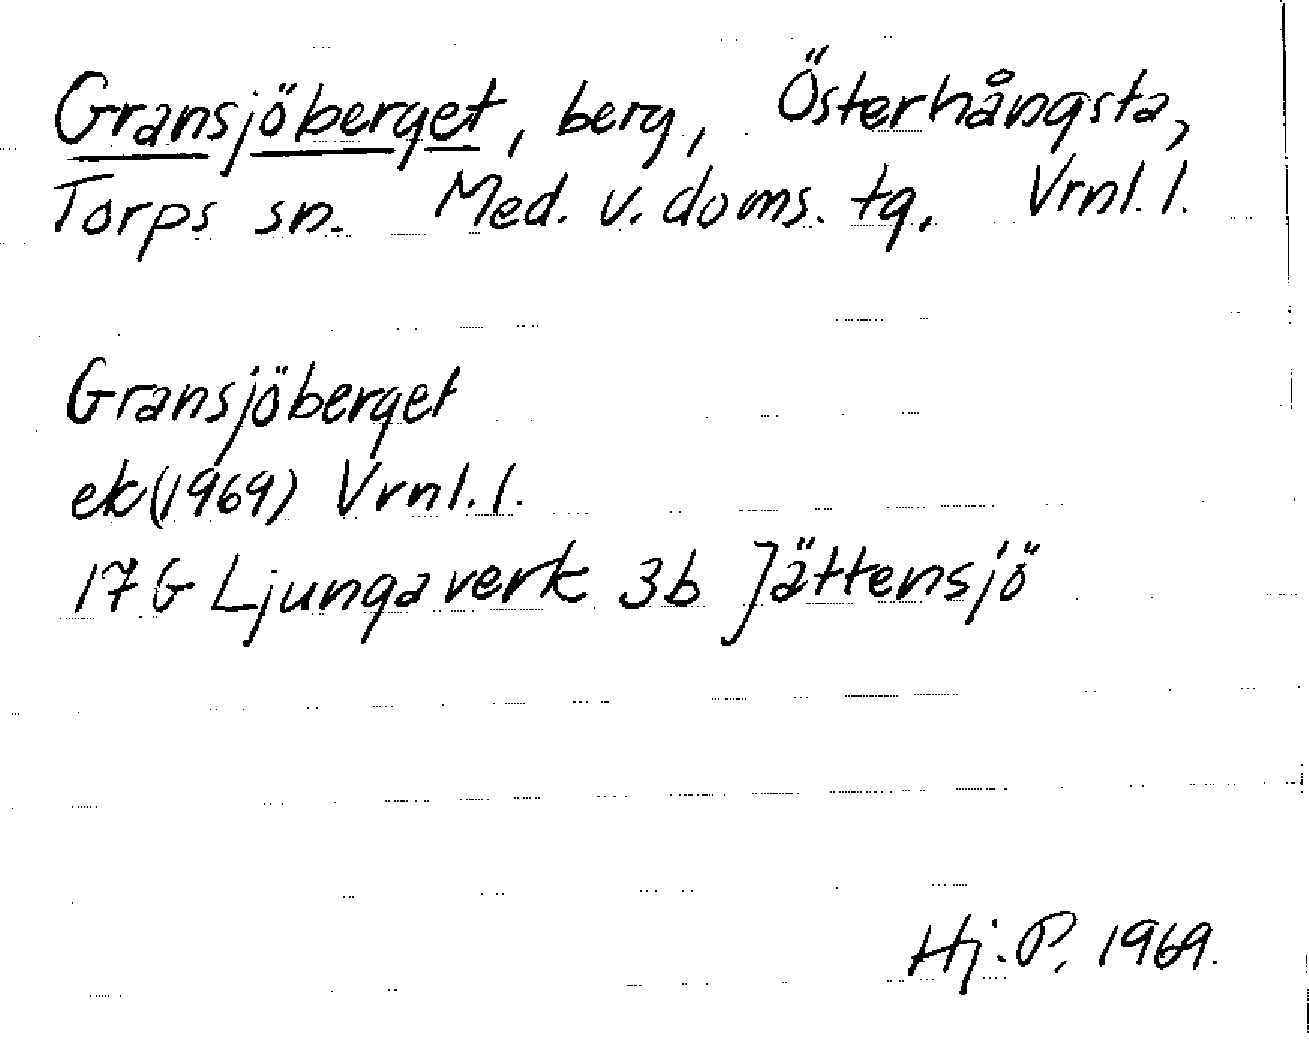 Gransjöberget, berg, Österhångsta,
Torps sn. Med. v. doms. tg. Vrnl. l.
Gransjöberget
ek (1969) Vrnl. l.
17 G Ljungaverk 3b Jättensjö
Hj. P. 1969.